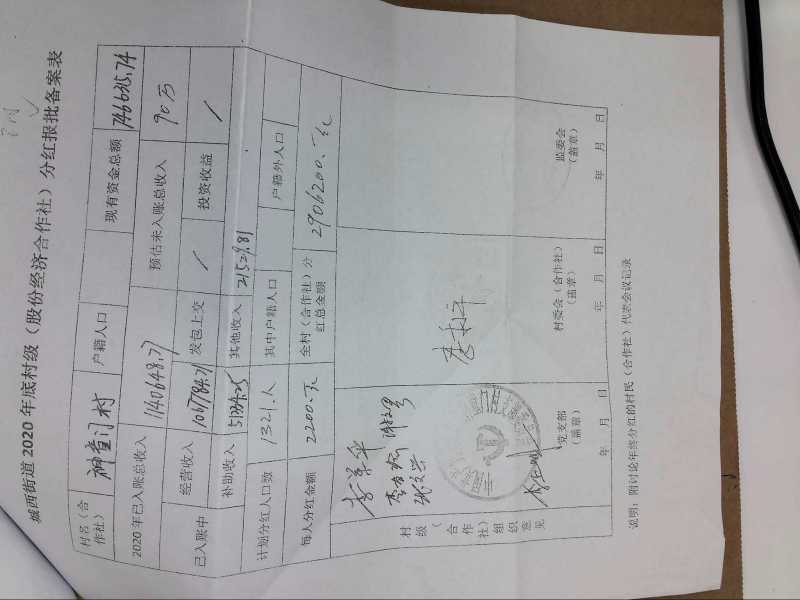 城西街道 2020 年底村级（股份经济合作社）分红报批备案表
村名（合作社） 神童门村 户籍人口 现有资金总额 746635.74
2020 年已入账总收入 1140648.77 预估未入账总收入 90万
已入账中 经营收入 发包上交 / 投资收益 /
补助收入 其他收入 21529.81
计划分红人口数 1321.人 其中户籍人口 户籍外人口
每人分红金额 2200.元 全村（合作社）分红总金额 2906200.元
村级（合作社）组织意见
党支部（盖章） 村委会（合作社）（盖章） 监委会（盖章）
年 月 日 年 月 日 年 月 日
说明：附讨论年终分红的村民（合作社）代表会议记录